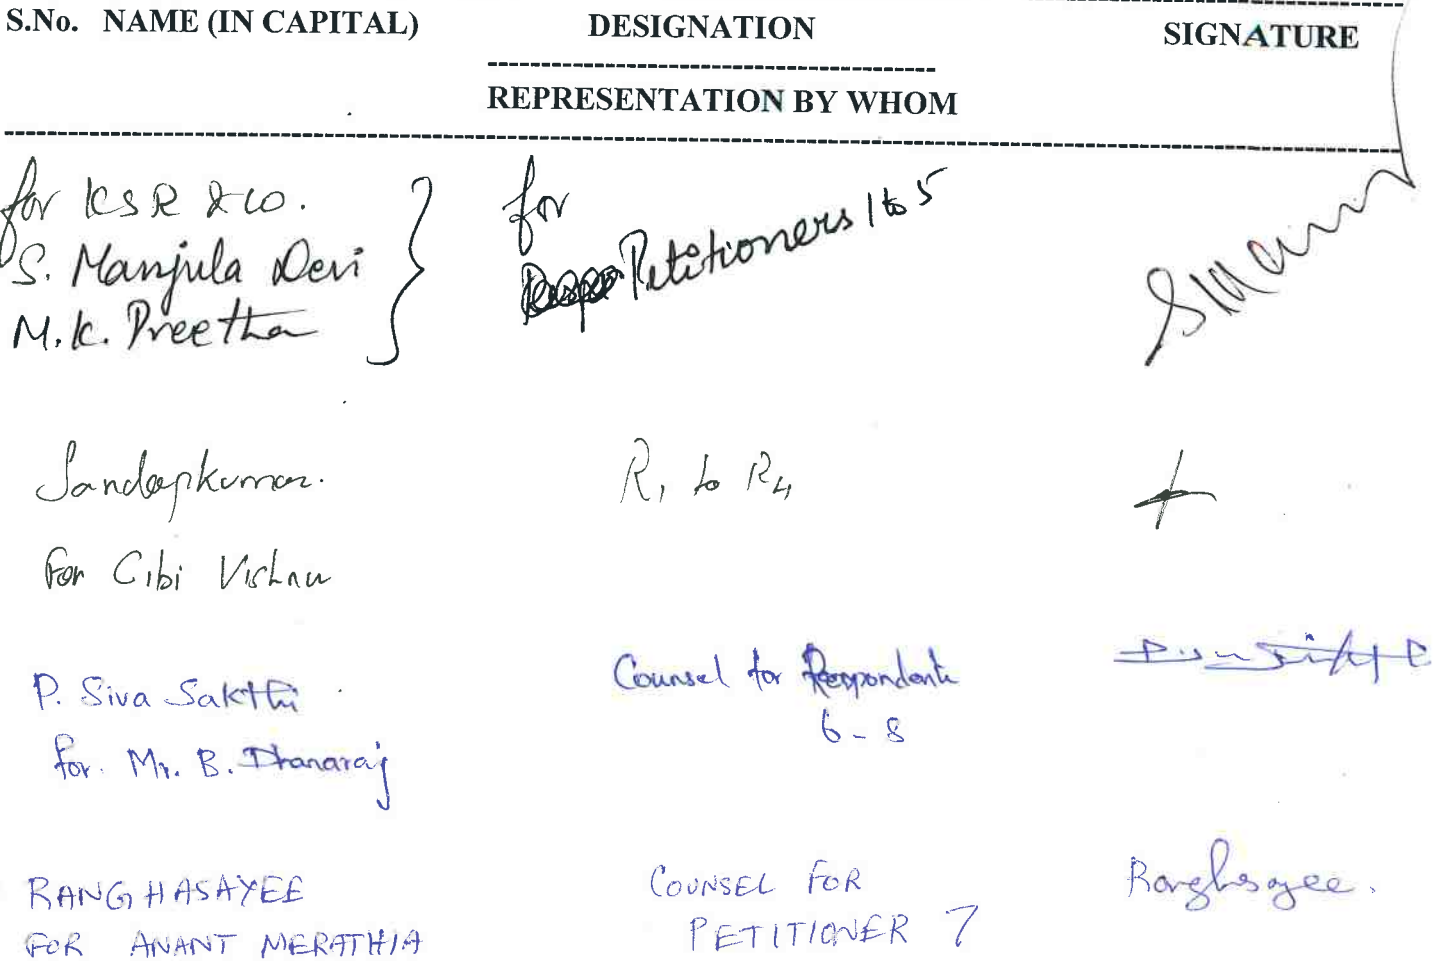 S.No. NAME (IN CAPITAL) DESIGNATION SIGNATURE
REPRESENTATION BY WHOM
for KSR & Co.
S. Manjula Devi
M.K. Preetha
for
Petitioners 1 to 5
Sandeepkumar.
R1 to R4
for Cibi Vishnu
P. Siva Sakthi
for Mr. B. Dhanaraj
Counsel for Respondents
6 - 8
RANGHASAYEE
FOR ANANT MERATHIA
COUNSEL FOR
PETITIONER 7
Ranghasayee.